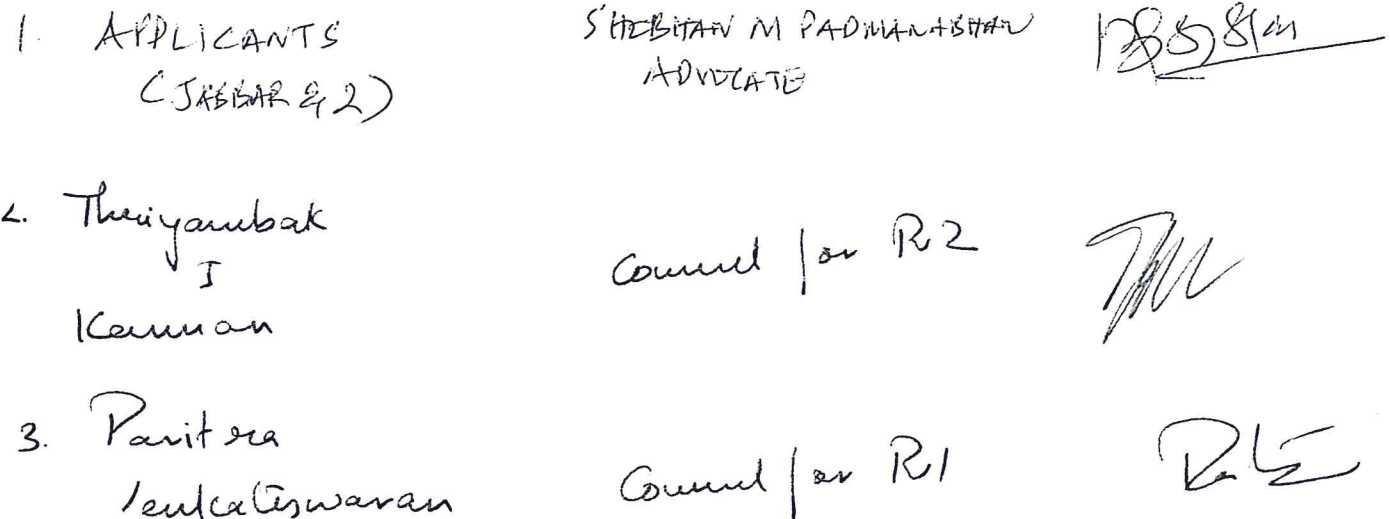 1. APPLICANTS SHEBHAN M PADMANABHAN
(JABBAR & 2) ADVOCATE
2. Thriyambak
J
Kannan
Counsel for R2
3. Pavitra
Venkateswaran
Counsel for R1